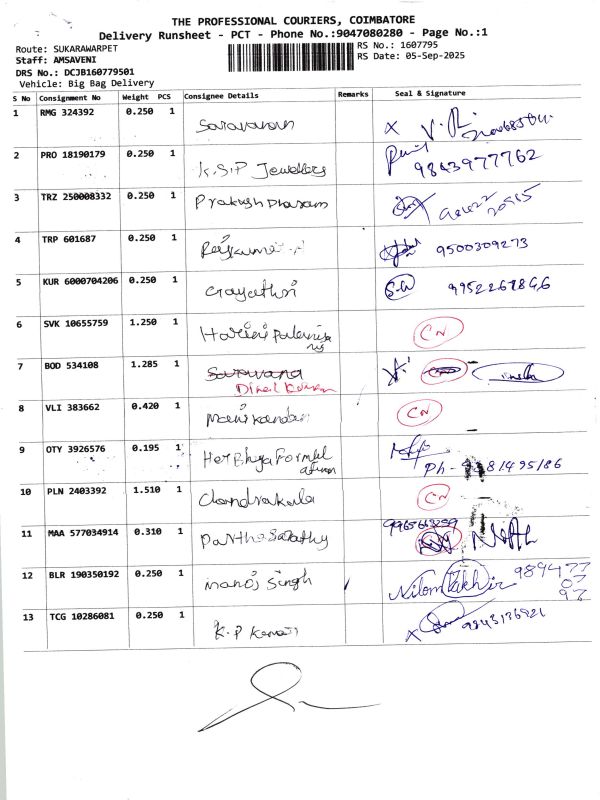 THE PROFESSIONAL COURIERS, COIMBATORE
Delivery Runsheet - PCT - Phone No.:9047080280 - Page No.:1
Route: SUKARAWARPET
RS No.: 1607795
Staff: AMSAVENI
RS Date: 05-Sep-2025
DRS No.: DCJB160779501
Vehicle: Big Bag Delivery
S No Consignment No Weight PCS Consignee Details Remarks Seal & Signature
1 RMG 324392 0.250 1 Saravanan X
2 PRO 18190179 0.250 1 K.S.P Jewellers 9843977762
3 TRZ 250008332 0.250 1 Prakash
4 TRP 601687 0.250 1 Rajkumar 9500309273
5 KUR 6000704206 0.250 1 Gayathri
6 SVK 10655759 1.250 1 Harini CN
7 BOD 534108 1.285 1 Saravana
Dinel Kumar
8 VLI 383662 0.420 1 Manikandan CN
9 OTY 3926576 0.195 1
Ph -
10 PLN 2403392 1.510 1 Chandrakala CN
11 MAA 577034914 0.310 1 Parthasarathy
12 BLR 190350192 0.250 1 Manoj Singh 989477
07
97
13 TCG 10286081 0.250 1 K.P X